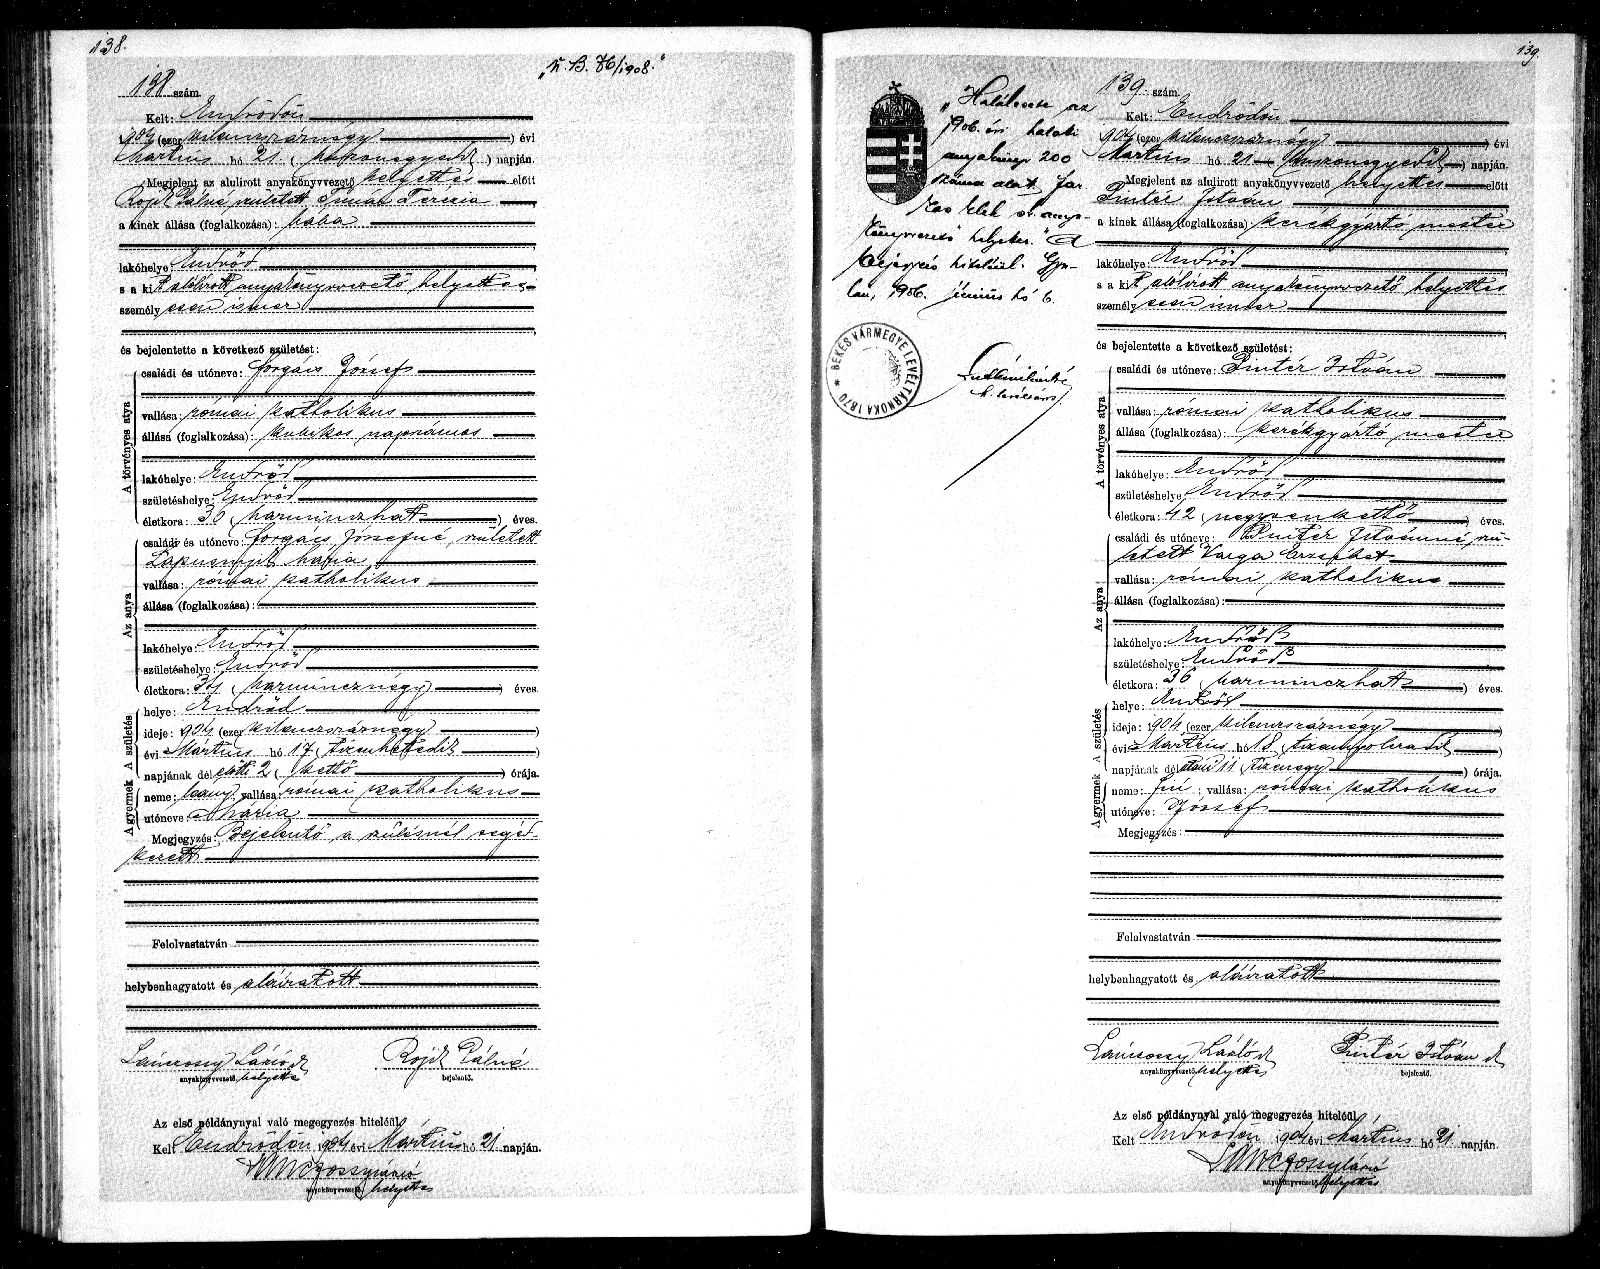 138.
"K. B. 76/1908."
138 szám.
Kelt: Endrődön
904 (ezer kilenczszáznégy ) évi
Mártius hó 21 ( huszonegyedik ) napján.
Megjelent az alulirott anyakönyvvezető helyettes előtt
Rojik Pálné, született Timár Terézia,
a kinek állása (foglalkozása): bába
lakóhelye: Endrőd
s a kit alólirott anyakönyvvezető helyettes
személyesen ismer,
és bejelentette a következő születést:
A törvényes atya
családi és utóneve: Forgács József
vallása: római katholikus
állása (foglalkozása): kubikos napszámos
lakóhelye: Endrőd
születéshelye: Endrőd
életkora: 36 (harminczhat ) éves.
Az anya
családi és utóneve: Forgács Józsefné, született
Lapusnyik Mária
vallása: római katholikus
állása (foglalkozása):
lakóhelye: Endrőd
születéshelye: Endrőd
életkora: 34 (harmincznégy ) éves.
A születés
helye: Endrőd
ideje: 904 (ezer kilenczszáznégy )
évi Mártius hó 17 (tizenhetedik )
napjának délelőtti 2 ( kettő ) órája.
A gyermek
neme: leány; vallása: római katholikus
utóneve: Mária
Megjegyzés: Bejelentő a szülésnél segéd-
kezett
Felolvastatván
helybenhagyatott és aláiratott
Lánczossy László
anyakönyvvezető helyettes
Rojik Pálné
bejelentő.
Az első példánynyal való megegyezés hiteléül
Kelt Endrődön, 1904 évi Mártius hó 21 napján.
Lánczossy László
anyakönyvvezető helyettes
139.
"Halálesete az
1906. évi halotti
anyakönyv 200
száma alatt. Far
kas Elek sk anya-
könyvvezető helyettes." A
bejegyzés hiteléül. Gyu-
lán, 1906. június hó 6.
* BÉKÉS VÁRMEGYE LEVÉLTÁRNOKA 1870
139 szám.
Kelt: Endrődön
904 (ezer kilenczszáznégy ) évi
Mártius hó 21 (huszonegyedik ) napján.
Megjelent az alulirott anyakönyvvezető helyettes előtt
Pintér István
a kinek állása (foglalkozása) kerékgyártó mester
lakóhelye: Endrőd
s a kit alólirott anyakönyvvezető helyettes
személyesen ismer
és bejelentette a következő születést:
A törvényes atya
családi és utóneve: Pintér István
vallása: római katholikus
állása (foglalkozása): kerékgyártó mester
lakóhelye: Endrőd
születéshelye: Endrőd
életkora: 42 (negyvenkettő ) éves.
Az anya
családi és utóneve: Pintér Istvánné, szü-
letett Varga Erzsébet
vallása: római katholikus
állása (foglalkozása):
lakóhelye: Endrőd
születéshelye: Endrőd
életkora: 36 (harminczhat ) éves.
A születés
helye: Endrőd
ideje: 904 (ezer kilenczszáznégy )
évi Mártius hó 18 (tizennyolczadik )
napjának délutáni 11 (tizenegy ) órája.
A gyermek
neme: fiú; vallása: római katholikus
utóneve: József
Megjegyzés:
Felolvastatván
helybenhagyatott és aláiratott
Lánczossy László
anyakönyvvezető helyettes
Pintér István
bejelentő.
Az első példánynyal való megegyezés hiteléül
Kelt Endrődön 1904 évi Mártius hó 21 napján.
Lánczossy László
anyakönyvvezető helyettes